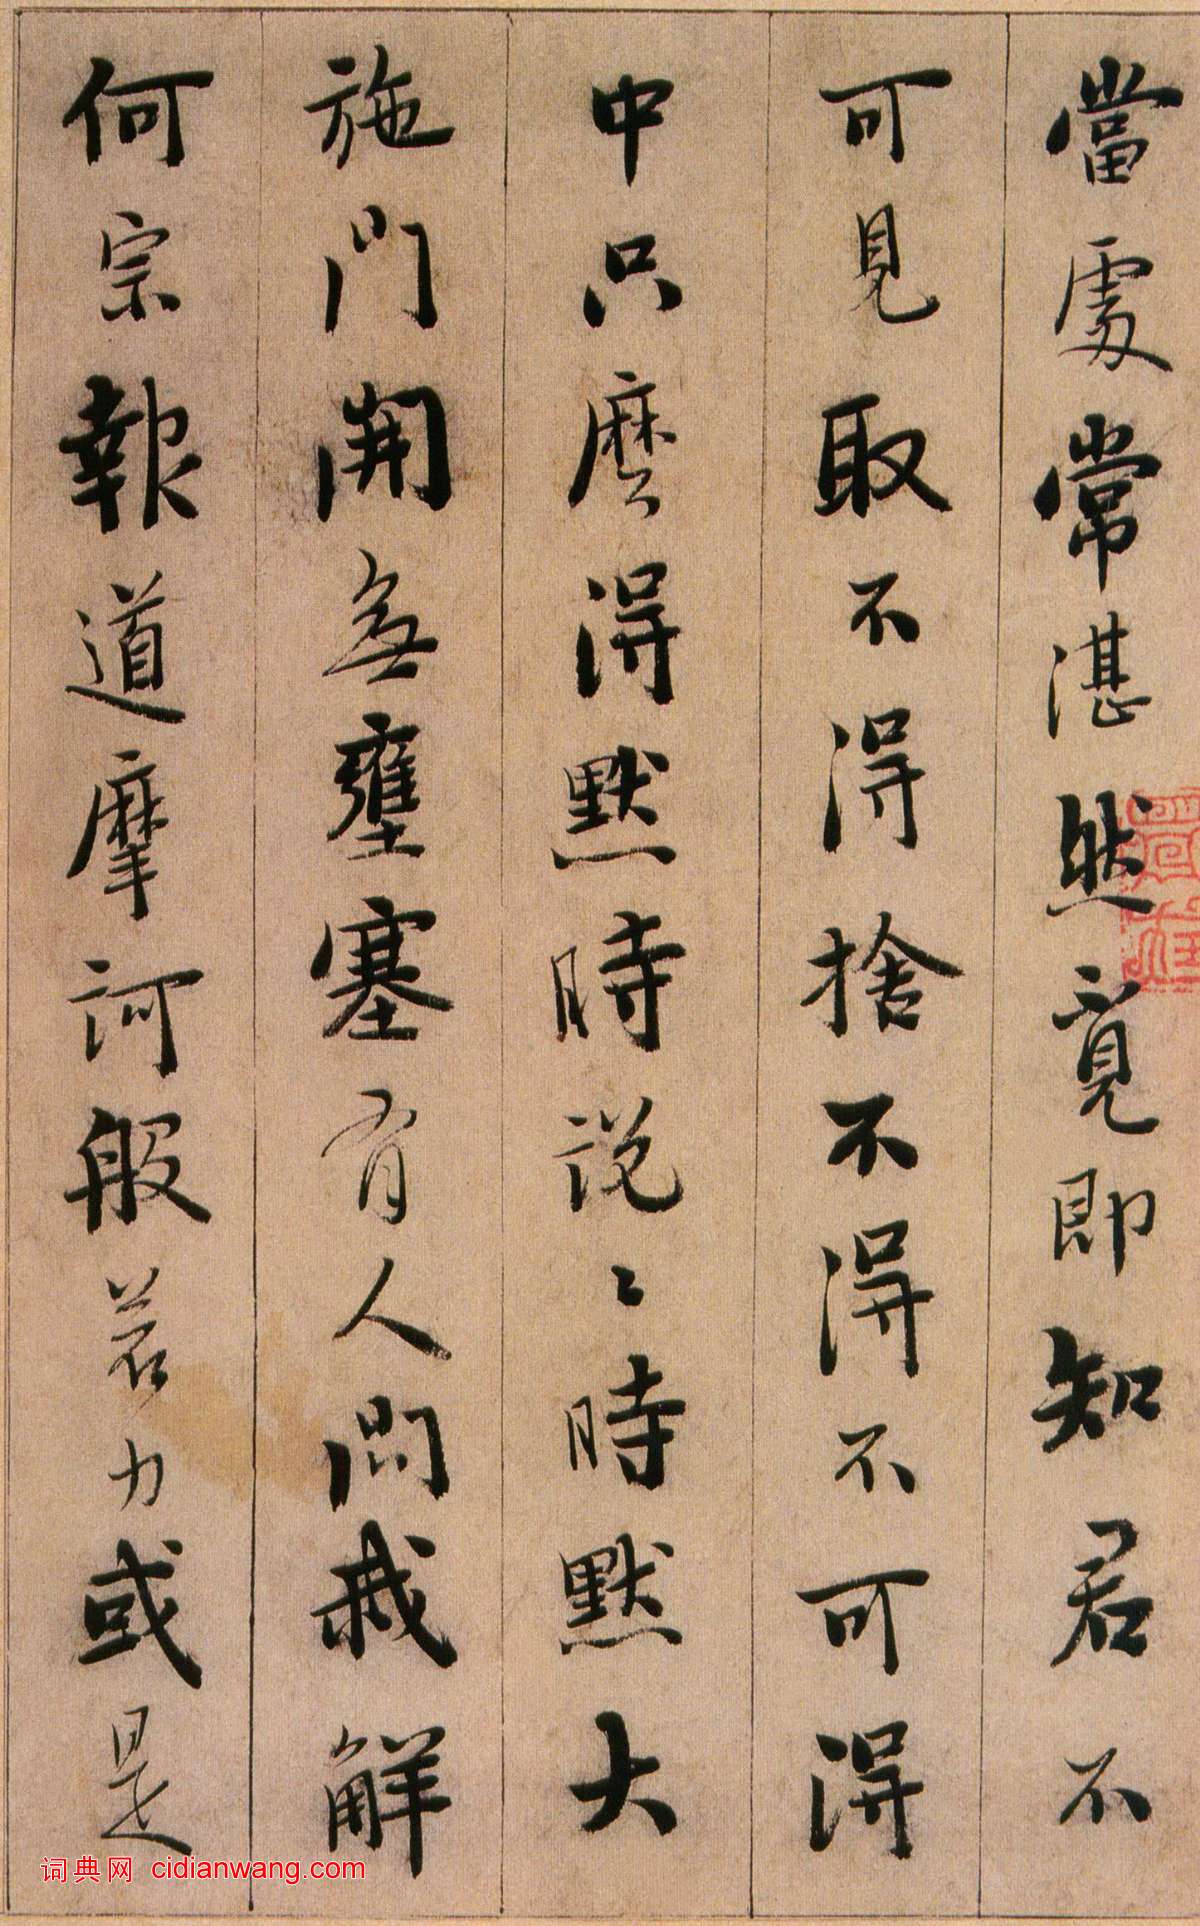 當處常湛然覓即知君不
可見取不得捨不得不可得
中只麼得默時說〻時默大
施門開無壅塞有人問我解
何宗報道摩訶般若力或是
词典网 cidianwang.com